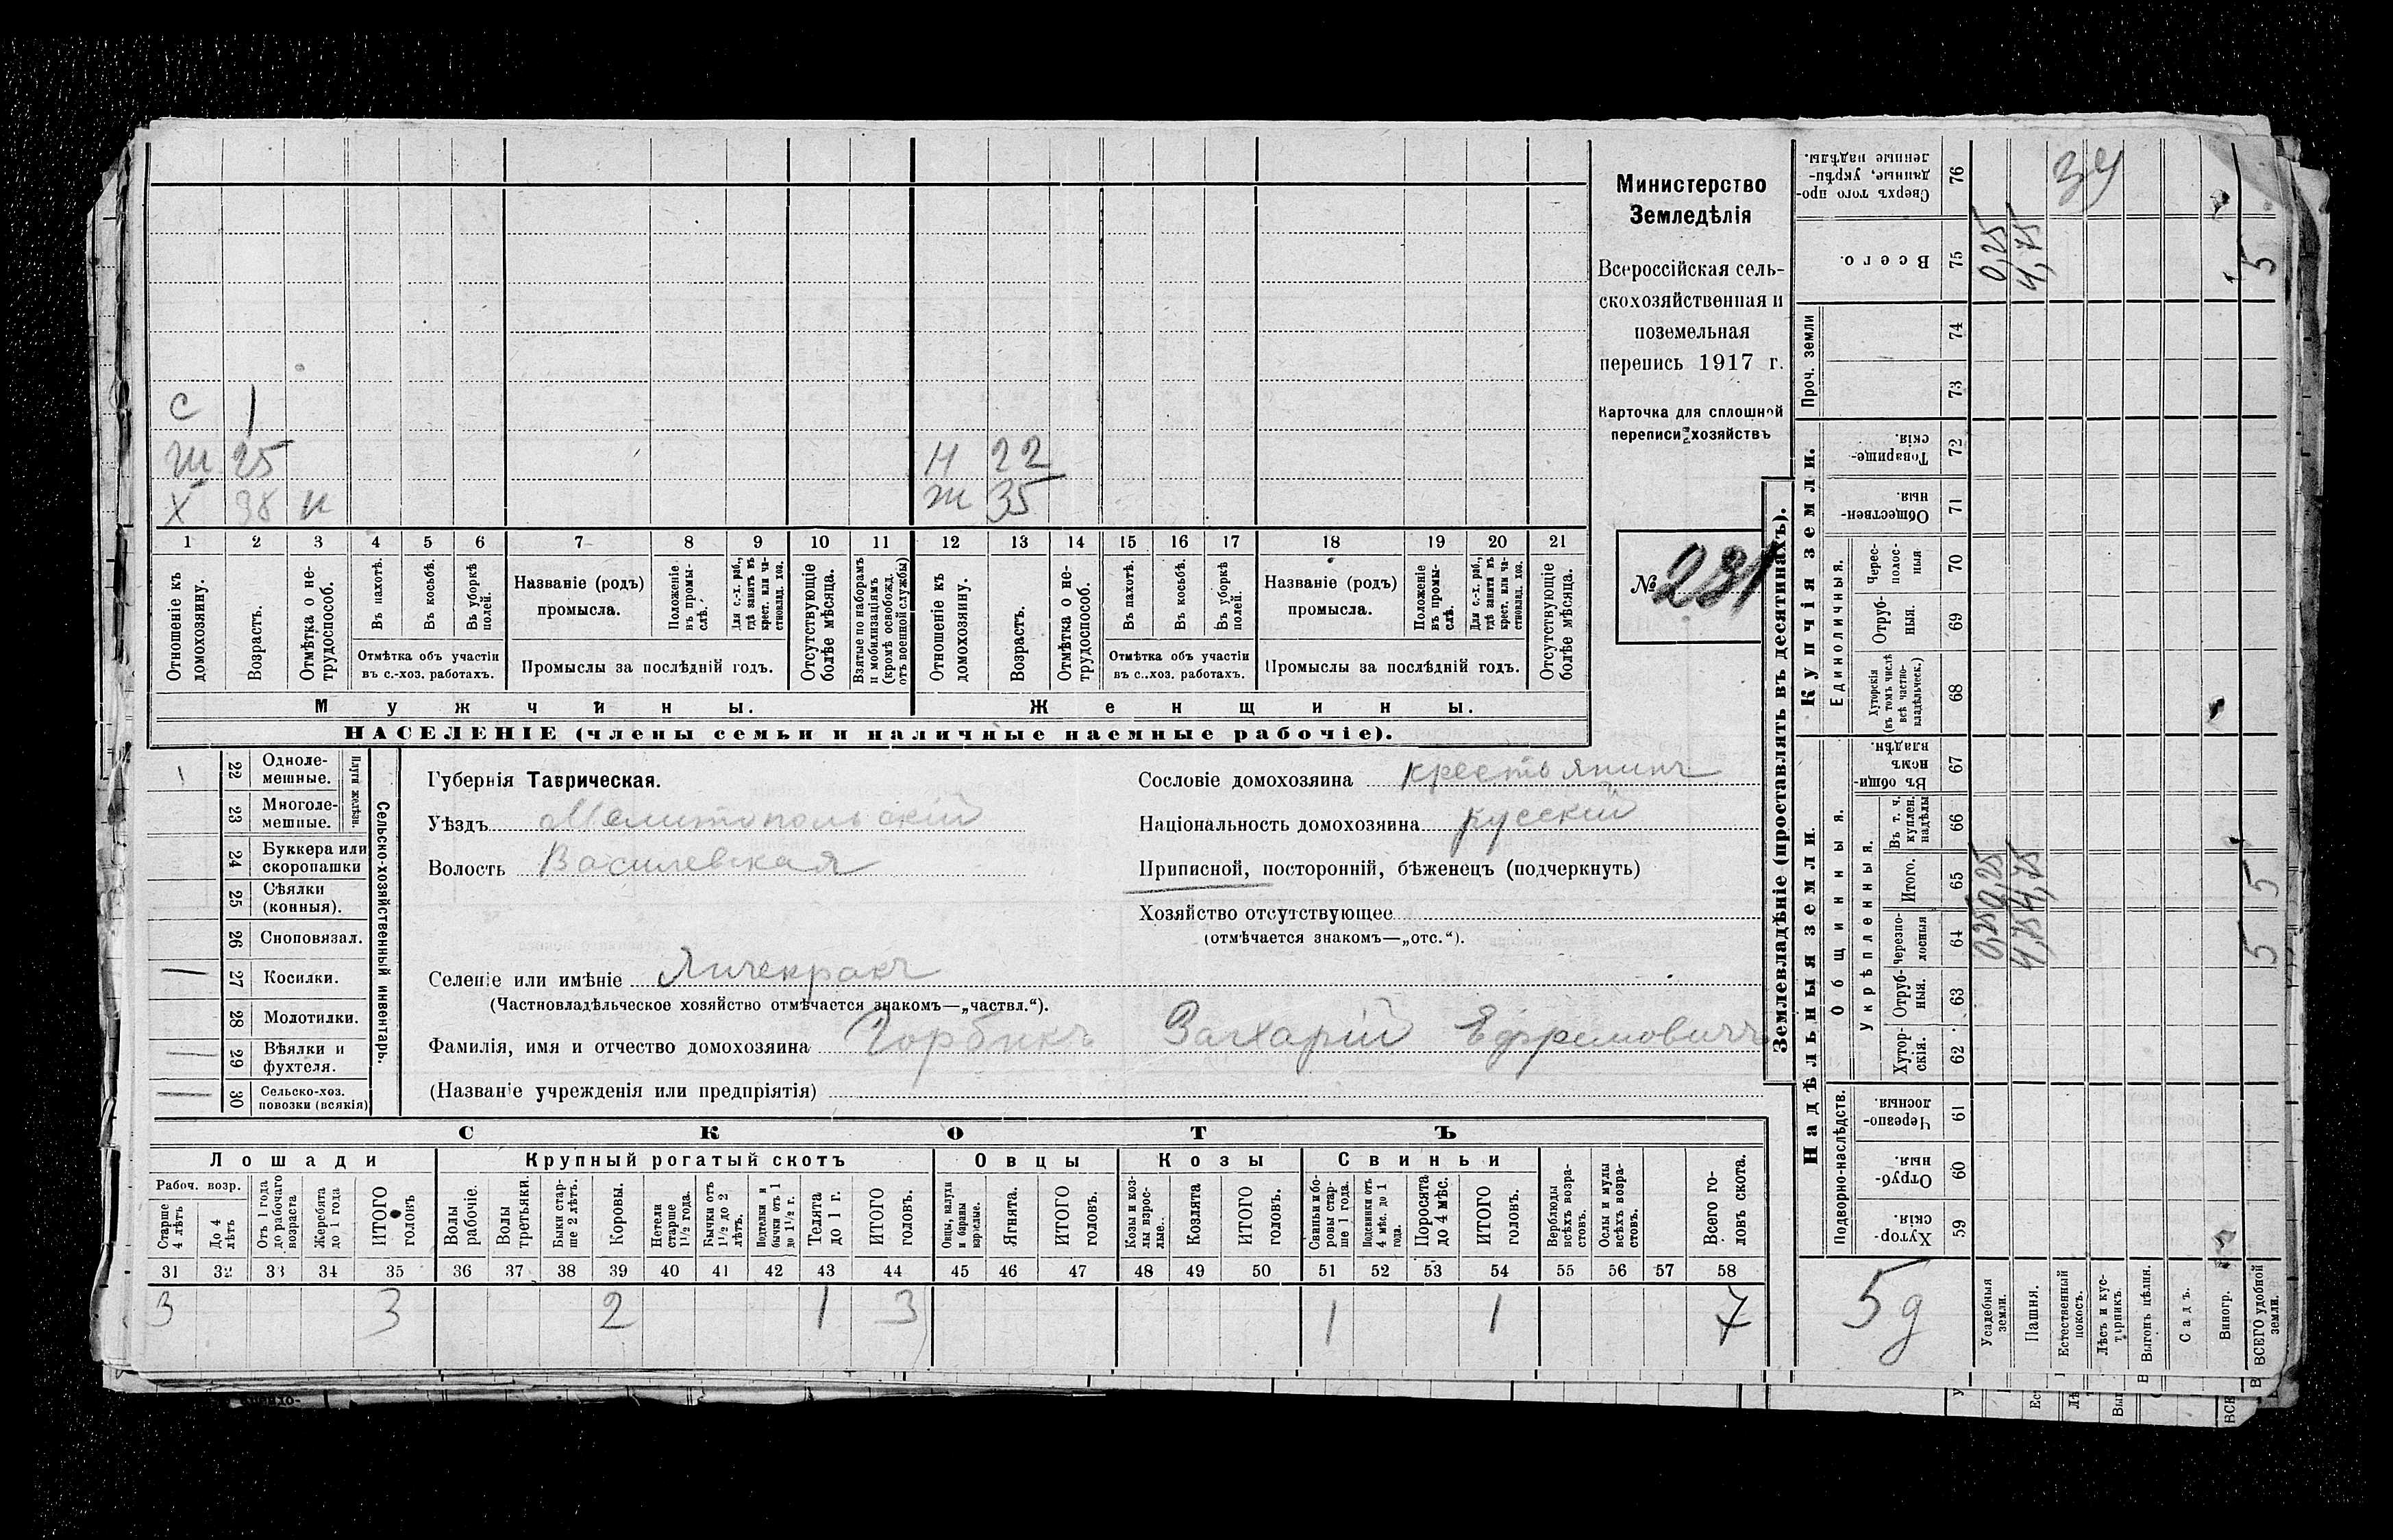 Министерство
Земледѣлія
Всероссійская сель-
скохозяйственная и
поземельная
перепись 1917 г.
Карточка для сплошной
переписи хозяйствъ
№ 231
С 1
Ж 25 Н 22
Х 38 н Ж 35
1 2 3 4 5 6 7 8 9 10 11 12 13 14 15 16 17 18 19 20 21
Отношеніе къ домохозяину.
Возрастъ.
Отмѣтка о не-трудоспособ.
Въ пахотѣ.
Въ косьбѣ.
Въ уборкѣ полей.
Отмѣтка объ участіи
въ с.-хоз. работахъ.
Названіе (родъ)
промысла.
Положеніе въ промы-слѣ.
Для с.-х. раб., гдѣ занятъ въ крест. или ча-стновлад. хоз.
Промыслы за послѣдній годъ.
Отсутствующіе болѣе мѣсяца.
Взятые по наборамъ и мобилизаціямъ (кромѣ освобожд. отъ военной службы)
Отношеніе къ домохозяину.
Возрастъ.
Отмѣтка о не-трудоспособ.
Въ пахотѣ.
Въ косьбѣ.
Въ уборкѣ полей.
Отмѣтка объ участіи
въ с.-хоз. работахъ.
Названіе (родъ)
промысла.
Положеніе въ промы-слѣ.
Для с.-х. раб., гдѣ занята въ крест. или ча-стновлад. хоз.
Промыслы за послѣдній годъ.
Отсутствующіе болѣе мѣсяца.
Мужчины.
Женщины.
НАСЕЛЕНІЕ (члены семьи и наличные наемные рабочіе).
Сельско-хозяйственный инвентарь.
Плуги желѣзн.
1 22 Одноле-мешные.
23 Многоле-мешные.
24 Буккера или скоропашки
25 Сѣялки (конныя).
26 Сноповязал.
— 27 Косилки.
28 Молотилки.
— 29 Вѣялки и фухтеля.
— 30 Сельско-хоз. повозки (всякія)
Губернія Таврическая.
Уѣздъ Мелитопольскій
Волость Василевская
Сословіе домохозяина крестьянинъ
Національность домохозяина русскій
Приписной, посторонній, бѣженецъ (подчеркнуть)
Хозяйство отсутствующее
(отмѣчается знакомъ—„отс.“).
Селеніе или имѣніе Янчекракъ
(Частновладѣльческое хозяйство отмѣчается знакомъ—„частвл.“).
Фамилія, имя и отчество домохозяина Горбикъ Захарій Ефремовичъ
(Названіе учрежденія или предпріятія)
СКОТЪ
Лошади
Крупный рогатый скотъ
Овцы
Козы
Свиньи
Рабоч. возр.
Старше 4 лѣтъ
До 4 лѣтъ
Отъ 1 года до рабочаго возраста
Жеребята до 1 года
ИТОГО головъ
Волы рабочіе.
Волы третьяки.
Быки стар-ше 2 лѣтъ.
Коровы.
Нетели старше 1½ года.
Бычки отъ 1½ до 2 лѣтъ.
Подтелки и бычки отъ 1 до 1½ г.
Телята до 1 г.
ИТОГО головъ.
Овцы, валухи и бараны взрослые.
Ягнята.
ИТОГО головъ.
Козы и коз-лы взрос-лые.
Козлята
ИТОГО головъ.
Свиньи и бо-ровы стар-ше 1 года.
Подсвинки отъ 4 мѣс. до 1 года.
Поросята до 4 мѣс.
ИТОГО головъ.
Верблюды всѣхъ возра-стовъ.
Ослы и мулы всѣхъ возра-стовъ.
Всего го-ловъ скота.
31 32 33 34 35 36 37 38 39 40 41 42 43 44 45 46 47 48 49 50 51 52 53 54 55 56 57 58
3 3 2 1 3 1 1 7
Землевладѣніе (проставлять въ десятинахъ).
Сверхъ того про-данные, укрѣп-ленные надѣлы. 76
34
Всего. 75
0,25
4,75
5
Проч. земли
74
73
Купчія земли.
Товарище-скія. 72
Обществен-ныя. 71
Единоличныя.
Черес-полос-ныя 70
Отруб-ныя. 69
Хуторскія (въ томъ числѣ всѣ частно-владѣльческ.) 68
Надѣльныя земли.
Общинныя.
Въ общи-номъ владѣн. 67
Укрѣпленныя.
Въ т. ч. куплен. надѣлы 66
Итого. 65
0,25
4,75
5
Черезпо-лосныя 64
0,25
4,75
5
Отруб-ныя. 63
Хутор-скія. 62
Подворно-наслѣдств.
Черезпо-лосныя. 61
Отруб-ныя. 60
Хутор-скія. 59
5 д
Усадебныя земли.
Пашня.
Естественный покосъ.
Лѣсъ и кус-тарникъ.
Выгонъ цѣлин.
Садъ.
Виногр.
ВСЕГО удобной земли.